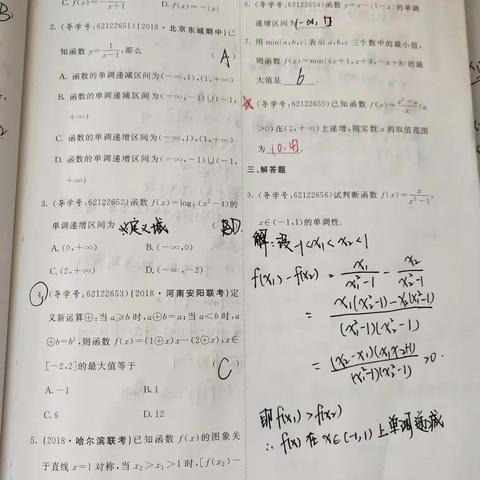 C. f(x)=1/(x+1)
D. f(x)=-|x|
2. (导学号:62122651)(2018·北京东城期中)已
知函数 y=1/(x-1),那么 ( A )
A. 函数的单调递减区间为(-∞,1),(1,+∞)
B. 函数的单调递减区间为(-∞,-1)∪(-1,
+∞)
C. 函数的单调递增区间为(-∞,1),(1,+∞)
D. 函数的单调递增区间为(-∞,-1)∪(-1,
+∞)
3. (导学号:62122652)函数 f(x)=log (x²-4)的
单调递增区间为 定义域 ( D )
A. (0,+∞) B. (-∞,0)
C. (2,+∞) D. (-∞,-2)
4. (导学号:62122653)(2018·河南安阳联考)定
义新运算⊕:当 a≥b 时,a⊕b=a;当 a<b 时,a
⊕b=b²,则函数 f(x)=(1⊕x)x-(2⊕x),x∈
[-2,2]的最大值等于 ( C )
A. -1 B. 1
C. 6 D. 12
5. (2018·哈尔滨联考)已知函数 f(x)的图象关
于直线 x=1 对称,当 x₂>x₁>1 时,[f(x₂)-
6. (导学号:62122654)函数 y=x-|1-x|的单调
递增区间为(-∞,1]
7. 用 min{a,b,c}表示 a,b,c 三个数中的最小值,
则函数 f(x)=min{4x+1,x+4,-x+8}的最
大值是 6 .
(导学号:62122655)已知函数 f(x)=(x²+a)/x(a
>0)在(2,+∞)上递增,则实数 a 的取值范围
为 (0,4] .
三、解答题
9. (导学号:62122656)试判断函数 f(x)=x/(x²-1),
x∈(-1,1)的单调性.
解:设-1<x₁<x₂<1
f(x₁)-f(x₂) = x₁/(x₁²-1) - x₂/(x₂²-1)
= [x₁(x₂²-1)-x₂(x₁²-1)]/[(x₁²-1)(x₂²-1)]
= (x₂-x₁)(x₁x₂+1)/[(x₁²-1)(x₂²-1)] >0.
即 f(x₁)>f(x₂)
∴ f(x) 在 x∈(-1,1) 上单调递减